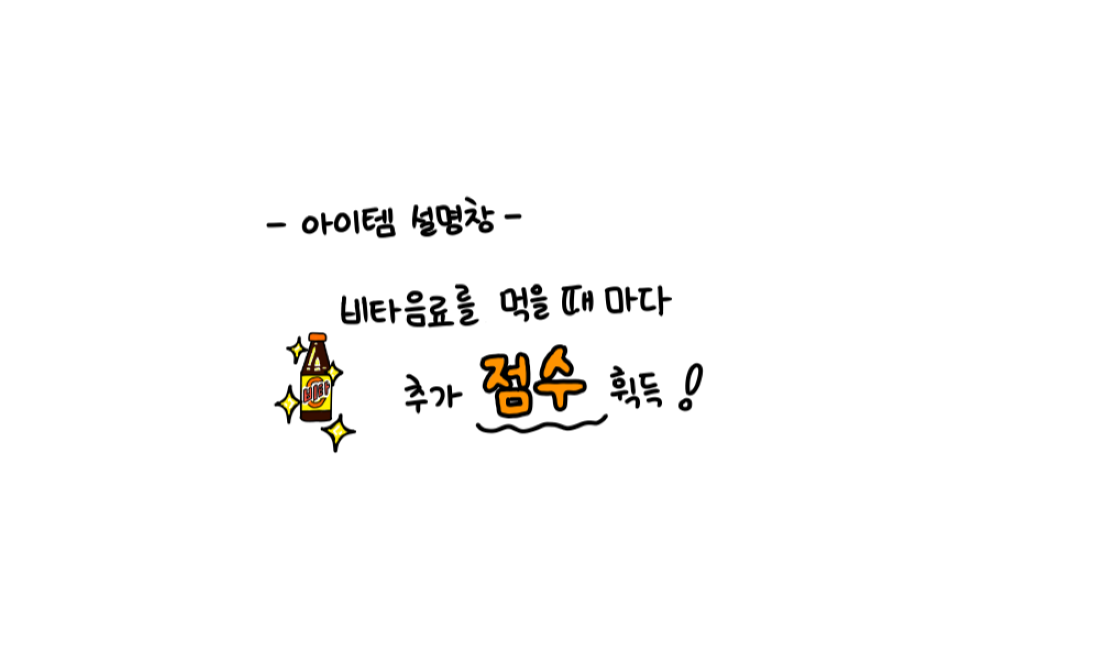 - 아이템 설명창 -
비타음료를 먹을 때 마다
추가 점수 휙득!
비타